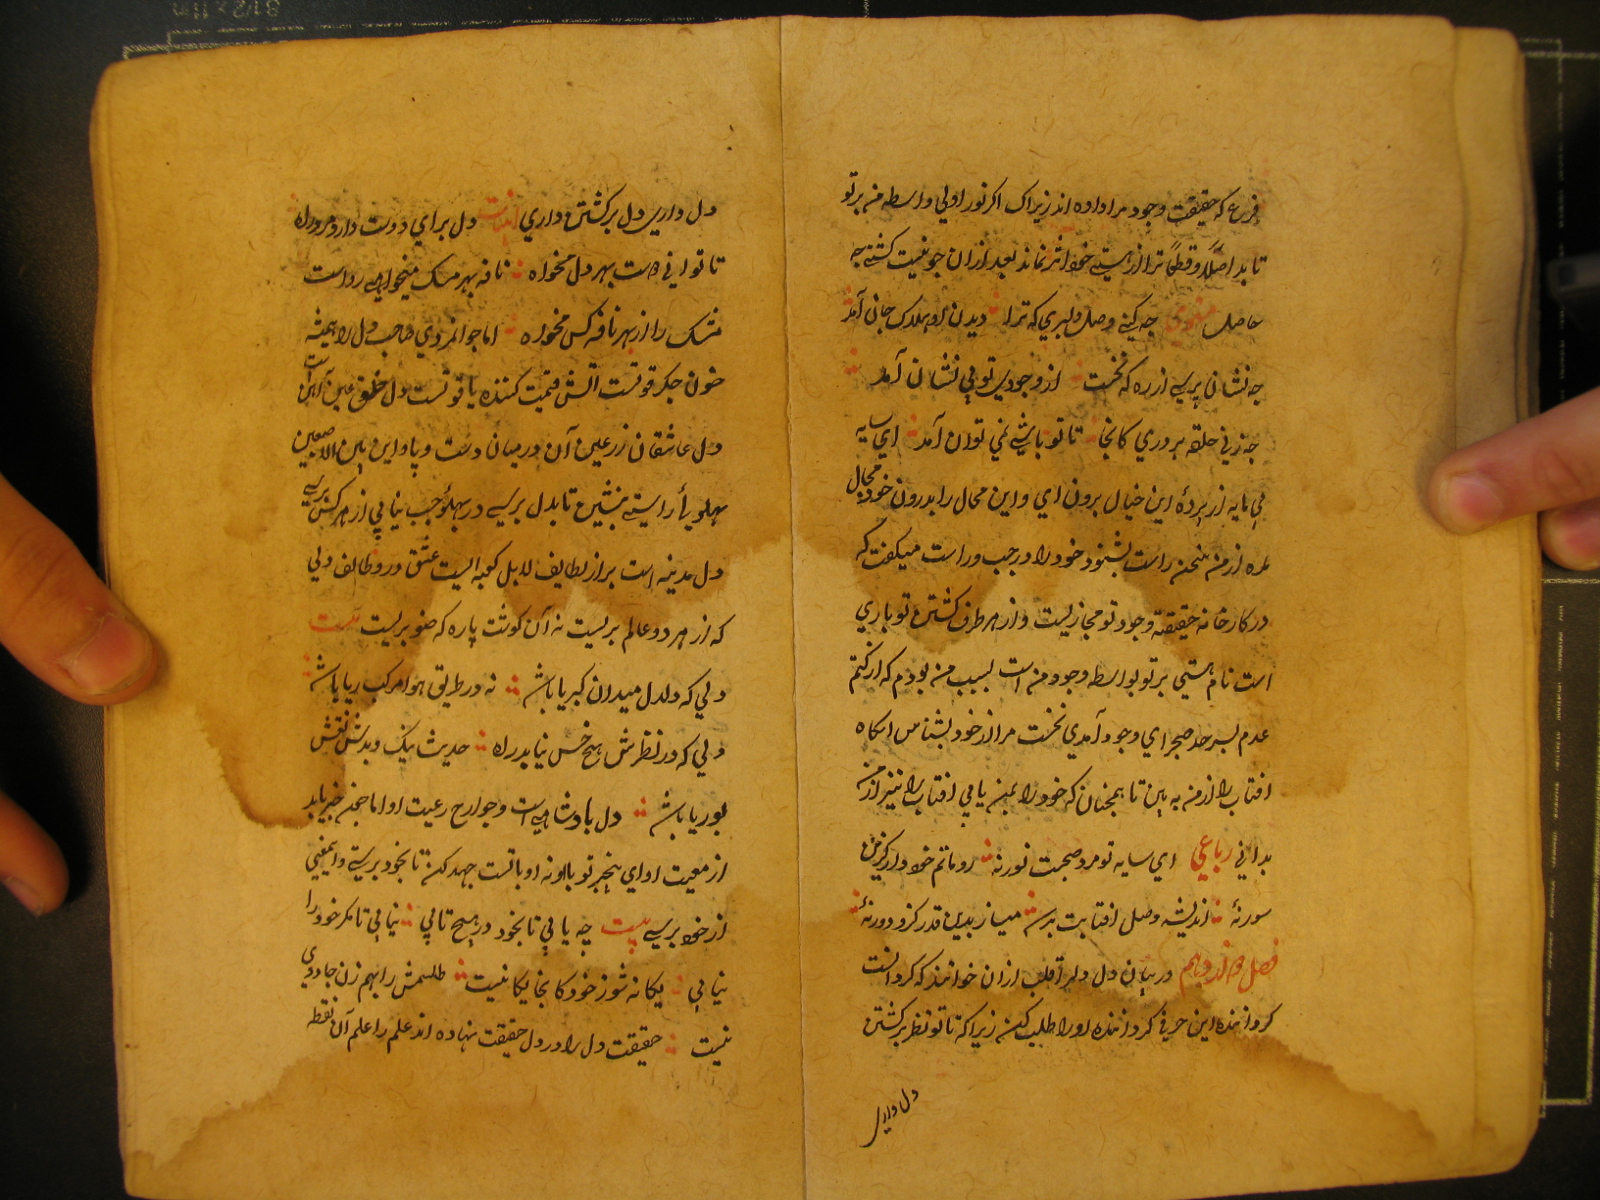 فرع که حقیقت وجود مرا داده اند زیراک اکر نور اولی واسطه من بر تو
تابد اصلا و قطعا ترا از هستی خود اثر نماند بعد ازان جو نیست کشتی جه
حاصل مثنوی جه کنی وصل دلبری که ترا دیدن او هلاک جان آمد
جه نشان پرسی از ره که نخست از وجودت تو بی نشان آمد
جه زنی حلقه بر دری کانجا تا تو باشی نمی توان آمد ای سایه
بی مایه از پردهٔ این خیال برون ای و این محال را بدرون خود مجال
مده از من سخن راست بشنو و خود را در جب و راست میکفت که
در کارخانه حقیقت وجود تو مجازیست و از هر طرف کشتن تو بازی
است نام هستی بر تو بواسطه وجود من است بسبب من بودم که از کتم
عدم بسرحد صحرای وجود آمدی نخست مرا از خود بشناس انکاه
افتاب را از من به بین تا همجنان که خود را بمن یابی افتاب را نیز از من
بدانی رباعی ای سایه تو مرد صحبت نور نهٔ رو ماتم خود دار کزین
سور نهٔ اندیشه وصل افتابت برسد میساز بدین قدر کزو دور نهٔ
فصل دوازدهم در بیان دل دلرا قلب ازان خوانند که کردانست
کرداننده این حرفی کرداننده او را طلب کن زیرا که تا تو نظر بر کشتن
دل داری
دل داری دل بر کشتن داری ابیات دل برای دوست دار و مرو راه
تا توانی دست بهر دل مخواه نافه بهر مسک میخواهی رواست
مشک را از بهر نافه کس مخواه اما جوانمردی صاحب دل را همیشه
خون جکر قوتست آتش قیمت کننده یاقوتست دل خلق عین آهن است
دل عاشقان زر عین آن در میان دست و پا و این بین الاصبعین
پهلوی راستی بنشین تا بدل برسی در پهلؤ جب نیابی از هر کس پرسی
دل مدینه است پر از لطایف لا بل کعبه الیست عشق درو طایف دلی
که از هر دو عالم بریست نه آن کوشت پاره که صنوبریست بیت
دلی که دلدل میدان کبریا باشد نه در طریق هوا مرکب ریا باشد
دلی که در نظرش هیج خس نیابد راه حدیث نیک و بدش نقش
بوریا باشد دل بادشاهی است و جوارح رعیت او اما جه خبر یابد
از معیت او ای بیخبر تو با او نه او با تست جهد کن تا بخود برسی و این معنی
از خود برسی بیت جه یابی تا بخود در هیج تابی نیابی تا مکر خود را
نیابی یکانه شو ز خود کانجا یکانیست طلسمش را بهم زن جادوی
نیست حقیقت دل را در دل حقیقت نهاده اند علم را علم آن نقطه